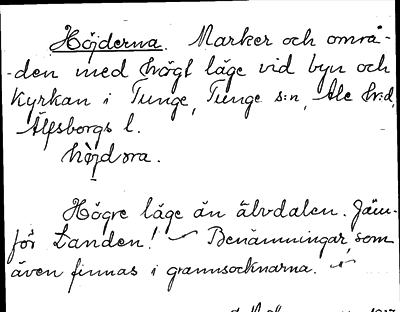 Höjderna. Marker och områ-
-den med högt läge vid byn och
Kyrkan i Tunge, Tunge s:n, Ale hr:d,
Älfsborgs l.
höjdṇra.
Högre läge än älvdalen. Jäm-
för Landen! Benämningar, som
även finnas i grannsocknarna.